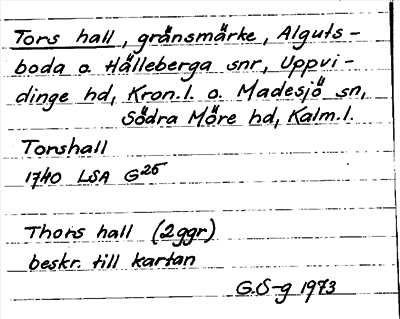 Tors hall, gränsmärke, Alguts-
boda o. Hälleberga snr, Uppvi-
dinge hd, Kron.l. o. Madesjö sn,
Södra Möre hd, Kalm.l.
Torshall
1740 LSA G25
Thors hall (2ggr)
beskr. till kartan
G.S-g 1973